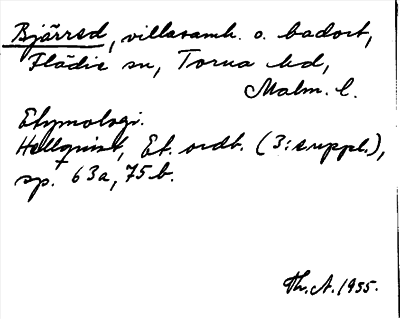 Bjärred, villasamh. o. badort,
Flädie sn, Torna hd,
Malm. l.
Etymologi.
Hellquist, Et. ordb. (3: suppl.),
sp. 63a, 75b.
Th. A. 1955.